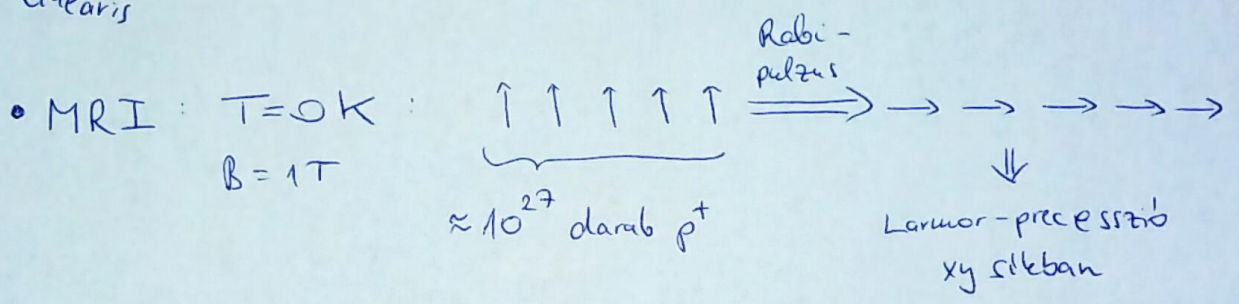 • MRI : T=0K : ↑ ↑ ↑ ↑ ↑ Rabi-pulzus ⟹ → → → → →
B = 1T
≈10^27 darab p^+
⇓
Larmor-precesszió
xy síkban